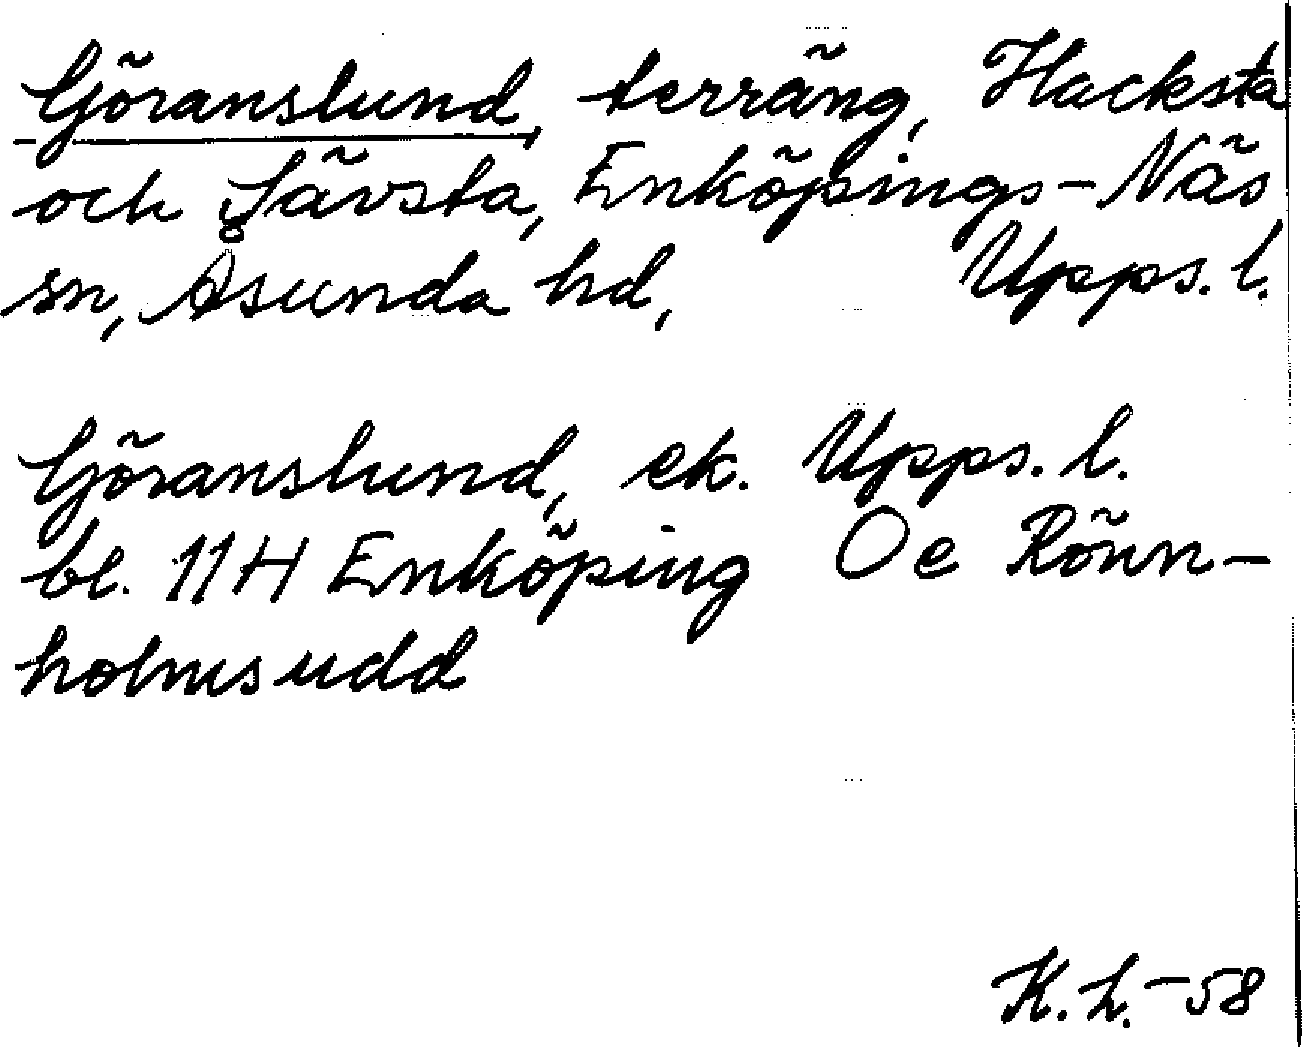 Göranslund, terräng, Hacksta
och Sävsta, Enköpings-Näs
sn, Åsunda hd, Upps. l.
Göranslund, ek. Upps. l.
bl. 11H Enköping Oe Rönn-
holmsudd
K. L. -58